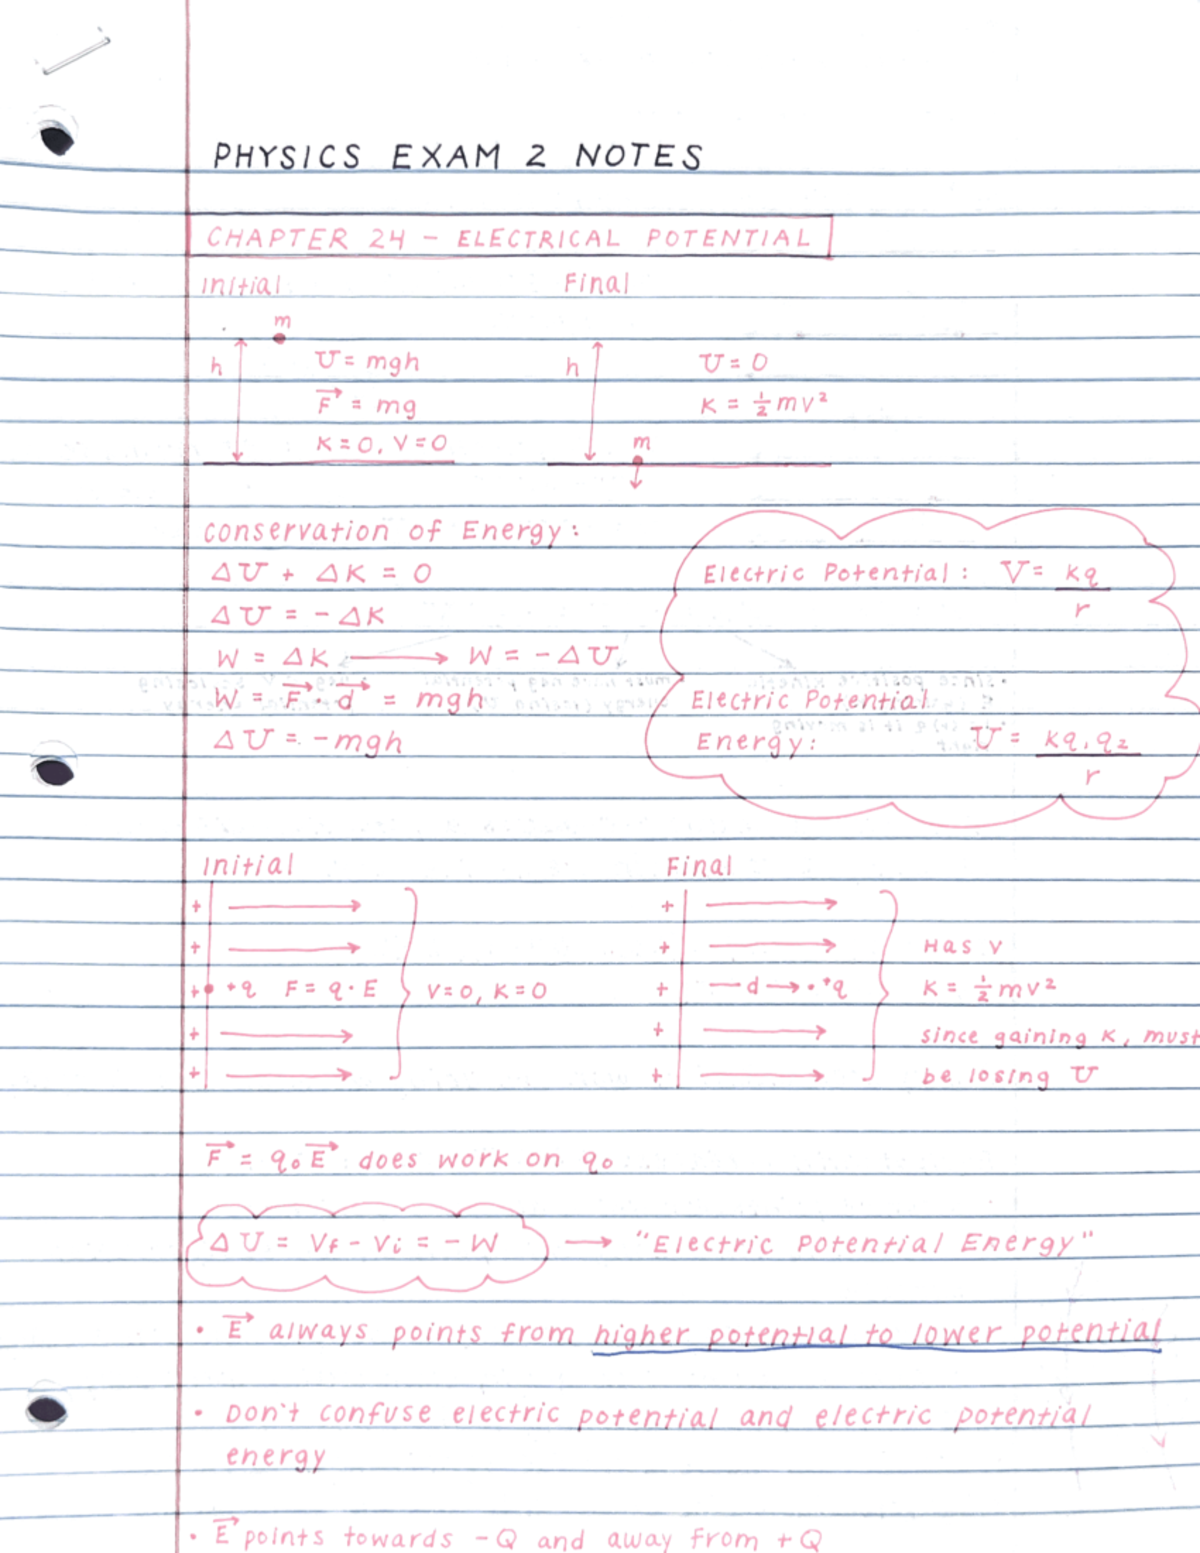 PHYSICS EXAM 2 NOTES
CHAPTER 24 - ELECTRICAL POTENTIAL
Initial Final
m
h U = mgh h U = 0
F⃗ = mg K = ½mv²
K = 0, V = 0 m
conservation of Energy:
ΔU + ΔK = 0 Electric Potential: V = kq/r
ΔU = -ΔK
W = ΔK ⟶ W = -ΔU
W = F⃗ · d⃗ = mgh Electric Potential
ΔU = -mgh Energy: U = kq₁q₂/r
Initial Final
+ +
+ + Has v
+ +q F = q·E V=0, K=0 + d → +q K = ½mv²
+ + since gaining K, must
+ + be losing U
F⃗ = q₀E⃗ does work on q₀
ΔU = Vf - Vi = -W → "Electric Potential Energy"
• E⃗ always points from higher potential to lower potential
• Don't confuse electric potential and electric potential
energy
• E⃗ points towards -Q and away from +Q